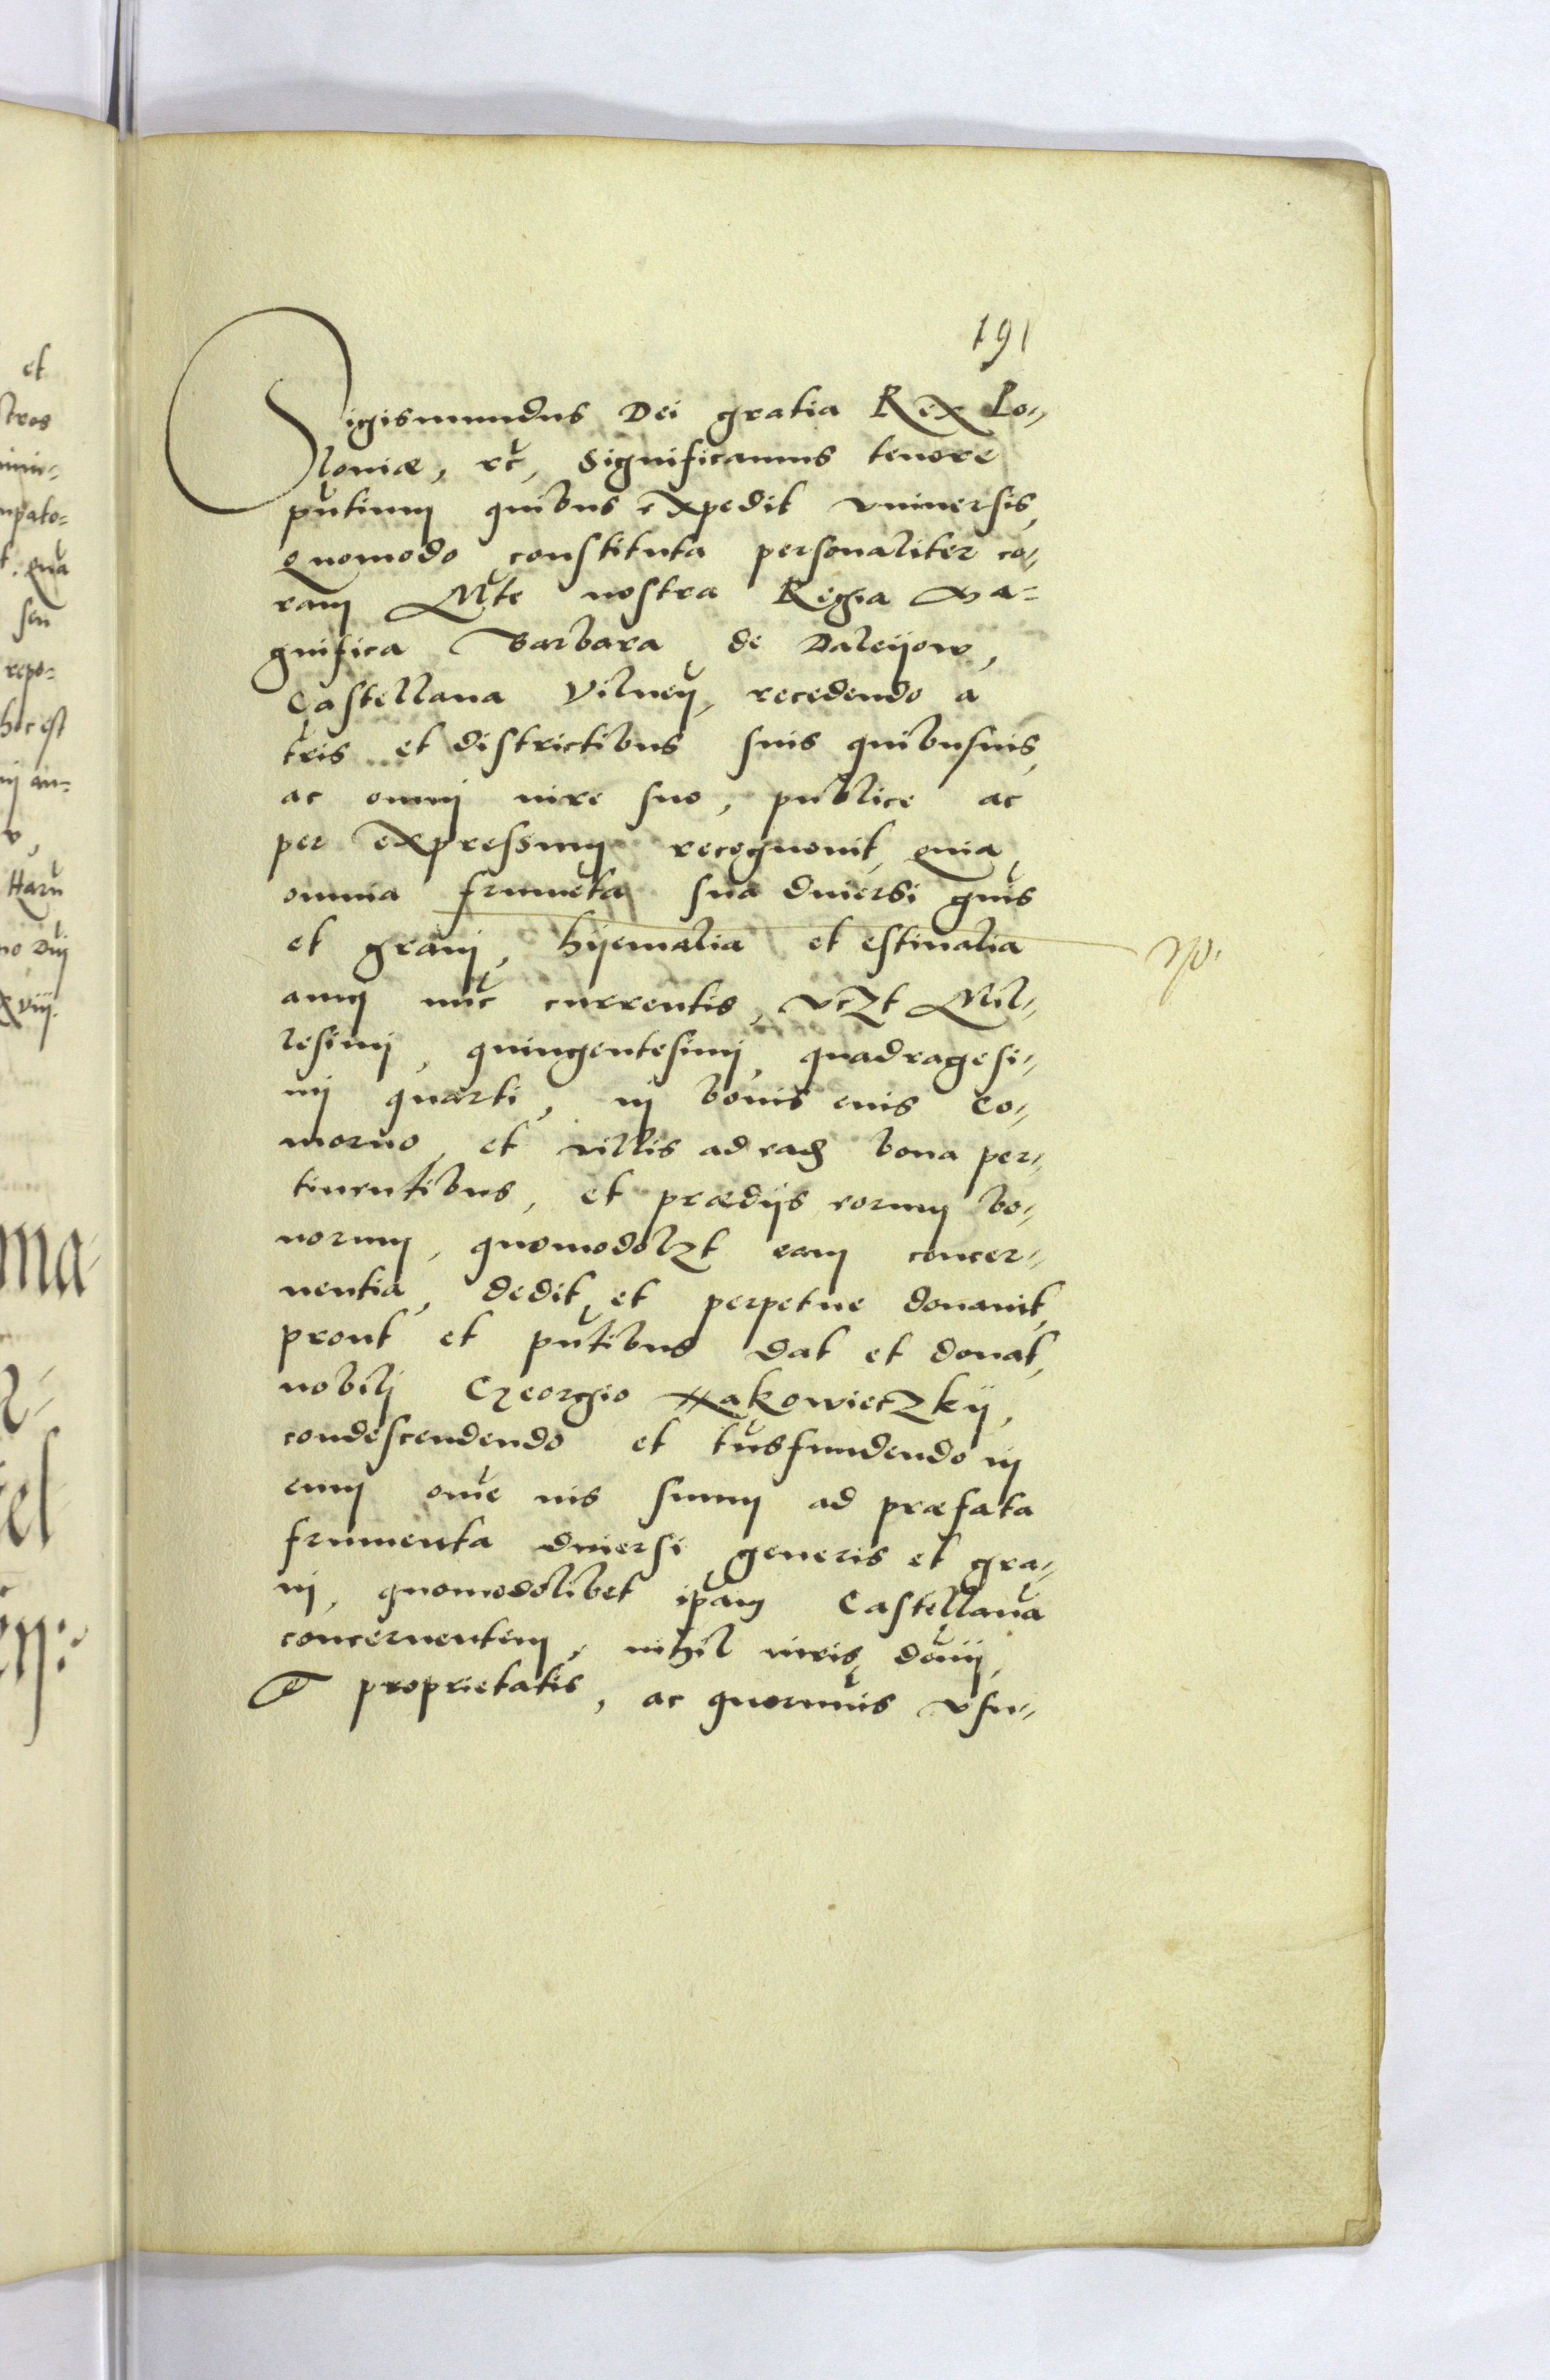 191
Sigismundus Dei gratia Rex Po-
loniæ, rc, Significamus tenore
pntium quibus expedit vniuersis,
Quomodo constituta personaliter co-
ram Mte nostra Regia Ma-
gnifica Barbara de Daleijow,
Castellana Vilneń, recedendo a
tris et districtibus suis quibusuis,
ac omni iure suo, publice ac
per expressum recognouit, Quia
omnia frumeta sua diuersi gnis
et grani, hijemalia et estiualia
anni nuc currentis, vczt Mil-
lesimi, quingentesimi, quadragesi-
mi quarti, in bonis suis Co-
morno, et villis ad eadẽ bona per-
tinentibus, et prædijs eorum bo-
norum, quomodolzt eam concer-
nentia, dedit, et perpetue donauit,
prout et pntibus dat et donat,
nobili Georgio Makowieczkij,
condescendendo et tnsfundendo in
eum ome ius suum ad præfata
frumenta diuersi generis et gra-
ni, quomodolibet ipam Castellana
concernentem, nihil iuris, domij,
et proprietatis, ac quorumuis vsu-